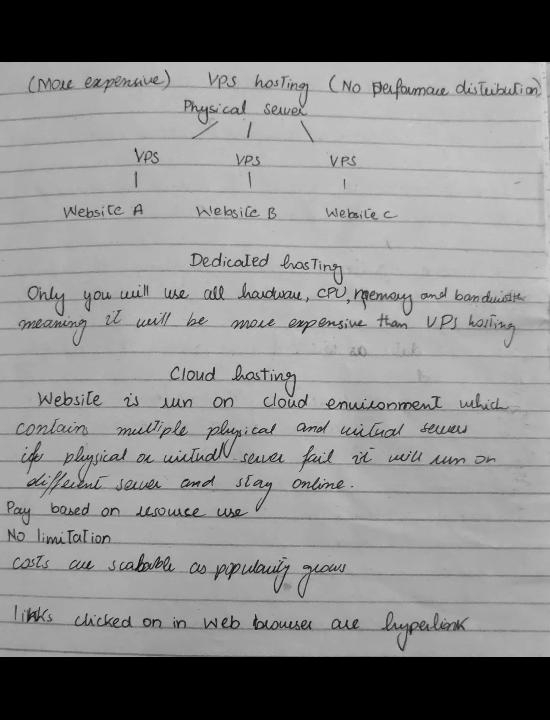 (More expensive) VPS hosting (No performace distribution)
Physical sewer
VPS VPS VPS
Website A Website B Website C
Dedicated hosting
Only you will use all hardware, CPU, memory and bandwidth
meaning it will be more expensive than VPS hosting
Cloud hosting
Website is run on cloud environment which
contains multiple physical and virtual servers
if physical or virtual server fail it will run on
different server and stay online.
Pay based on resource use
No limitation
costs are scalable as popularity grows
links clicked on in web browser are hyperlink